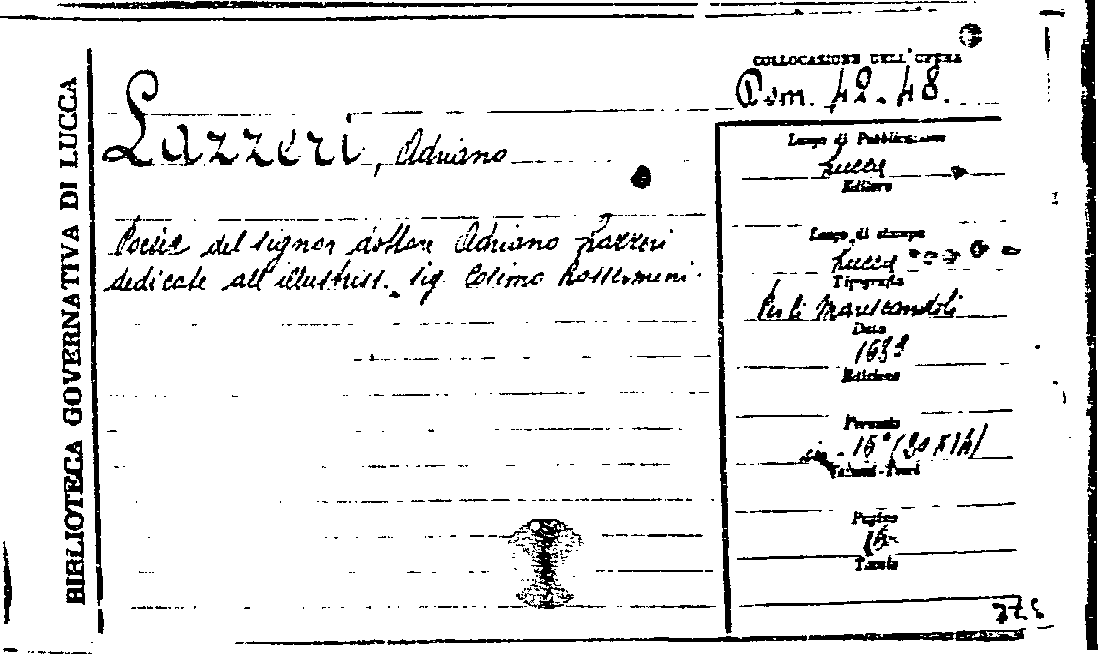 BIBLIOTECA GOVERNATIVA DI LUCCA
COLLOCAZIONE DELL'OPERA
42.48.
Lazzeri, Adriano
Luogo di Pubblicazione
Lucca
Editore
Poesie del signor dottore Adriano Lazzeri
dedicate all'illustriss. sig. Cosimo
Luogo di stampa
Lucca
Tipografia
Marescandoli
Data
Edizione
Formato
in-16°
Volumi-Parti
Pagine
Tavole